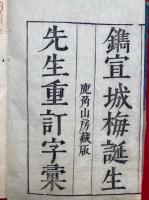 鐫宣城梅誕生
先生重訂字彙
鹿角山房藏版